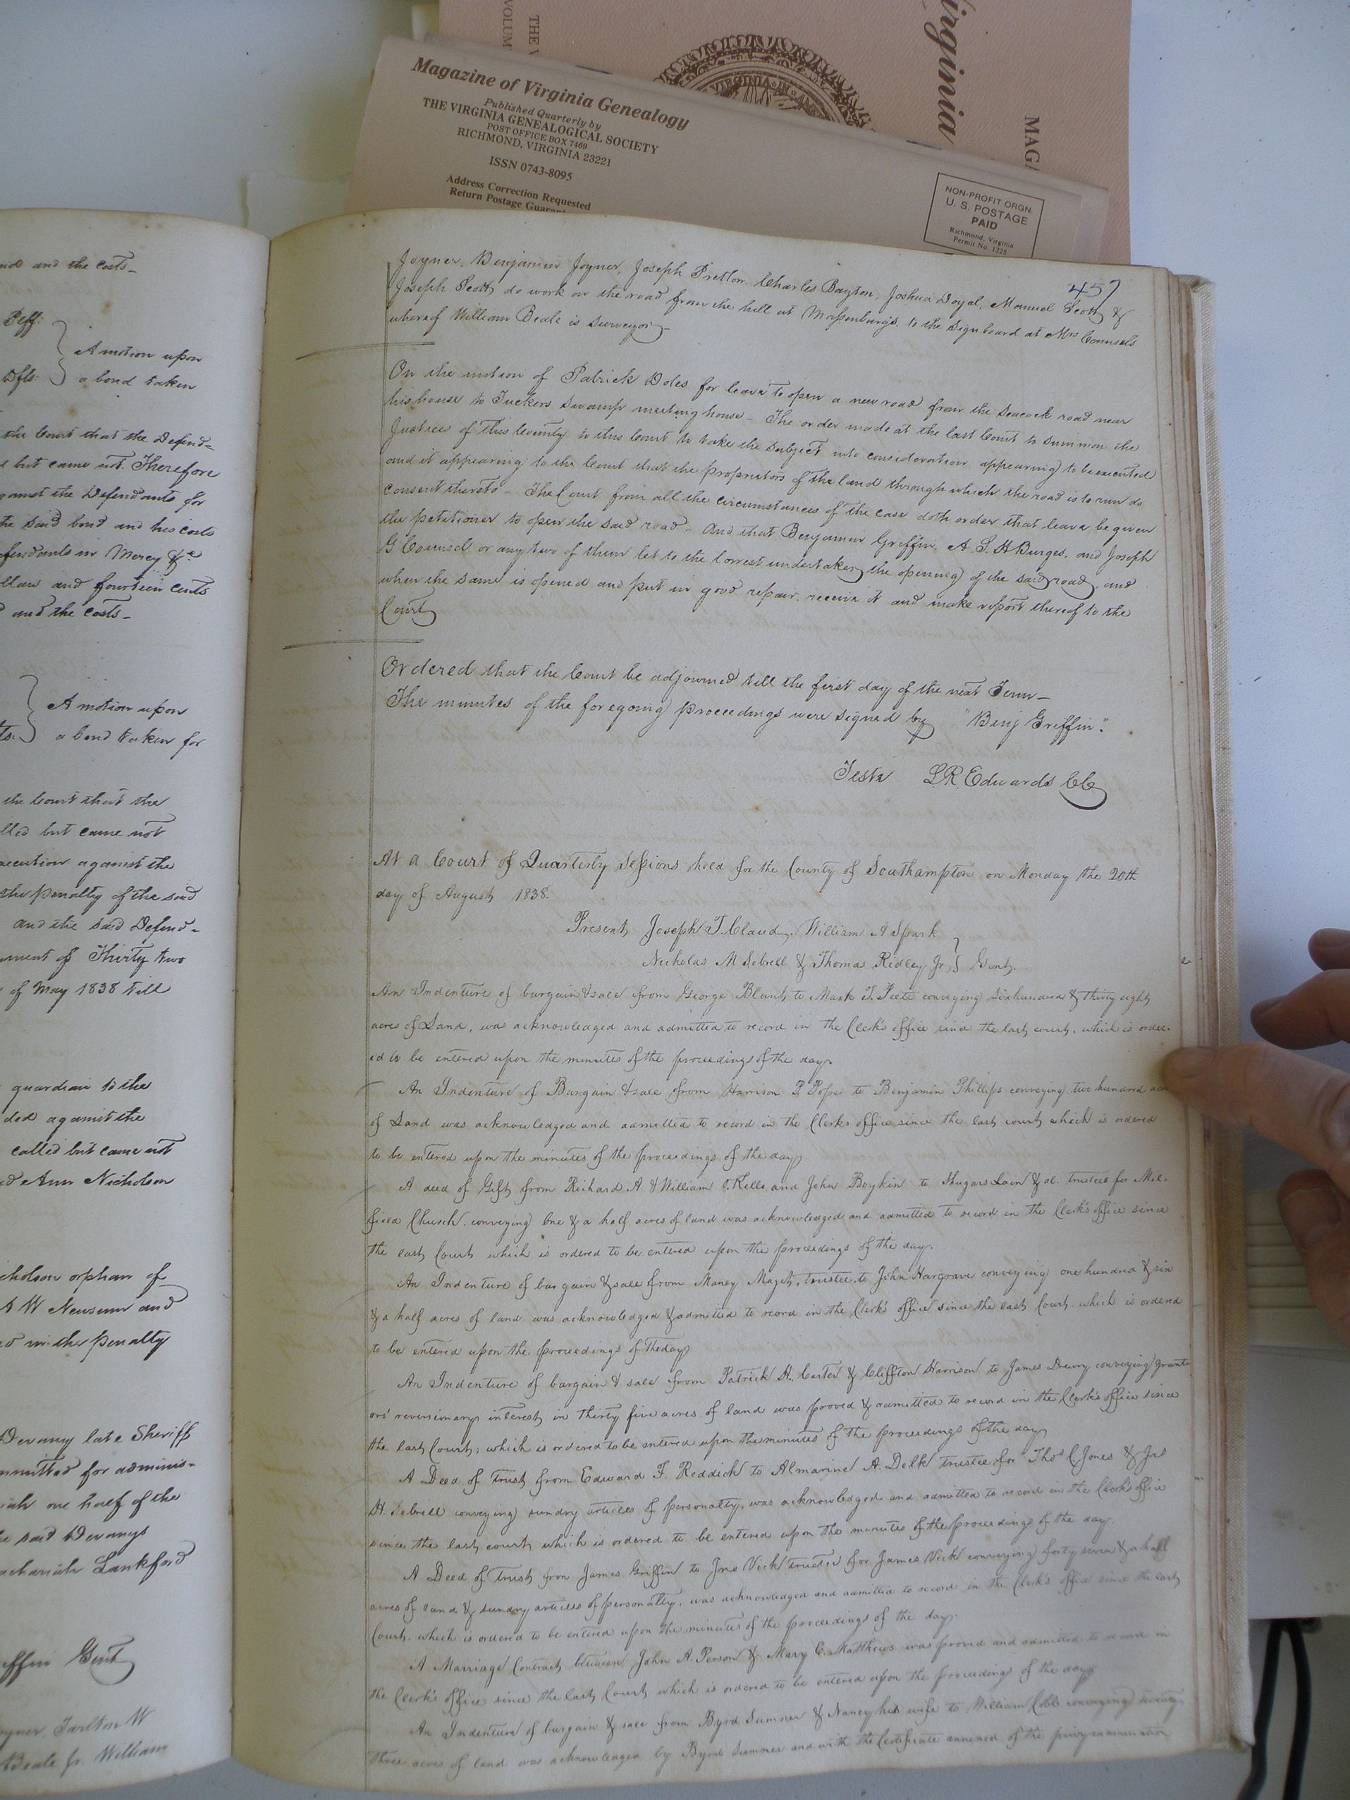 Virginia
MAGA
THE V
VOLUM
VIRGINIA
Magazine of Virginia Genealogy
Published Quarterly by
THE VIRGINIA GENEALOGICAL SOCIETY
POST OFFICE BOX 7469
RICHMOND, VIRGINIA 23221
ISSN 0743-8095
Address Correction Requested
Return Postage Guarant
NON-PROFIT ORGN.
U. S. POSTAGE
PAID
Richmond, Virginia
Permit No. 1225
and the Costs-
Plff.
A motion upon
Dfts.
a bond taken
the Court that the Defend-
but came not. Therefore
against the Defendants for
the said bond and his costs
defendants in Mercy &c
dollars and fourteen cents
and the costs-
A motion upon
a bond taken for
the Court that the
called but came not
execution against the
the penalty of the said
and the said Defend-
payment of Thirty two
of May 1838 till
guardian to the
ded against the
called but came not
Ann Nicholson
Nicholson orphan of
W Newsum and
in the penalty
Devany late Sheriff
committed for adminis-
one half of the
the said Devanys
Zachariah Lankford
Griffin Gent
Joyner, Tarlton W
Beale Jr. William
457
Joyner, Benjamin Joyner, Joseph Pretlow, Charles Boyton, Joshua Doyel, Manuel Scott &
Joseph Scott, do work on the road from the hill at Massenburgs to the Sign board at Mrs Counsels
whereof William Beale is Surveyor
On the motion of Patrick Doles for leave to open a new road from the Seacock road near
his house to Tuckers Swamp meeting house - The order made at the last Court to Summon the
Justices of this County to this Court to take the subject into consideration appearing to be executed
and it appearing to the Court that the proprietors of the land through which the road is to run do
consent thereto - The Court from all the circumstances of the case doth order that leave be given
the petitioner to open the said road And that Benjamin Griffin, A. S. H Burges, and Joseph
G Counsel or any two of them let to the lowest undertaker the opening of the said road and
when the same is opened and put in good repair receive it and make report thereof to the
Court
Ordered that the Court be adjourned till the first day of the next Term-
The minutes of the foregoing proceedings were signed by "Benj Griffin".
Teste L R Edwards CC
At a Court of Quarterly Sessions held for the County of Southampton on Monday the 20th
day of August 1838.
Present, Joseph T. Claud, William A Spark
Nicholas M Sebrell & Thomas Ridley Jr } Gent.
An Indenture of bargain & sale from George Blunt to Mark T. Pete conveying Six hundred & thirty eight
acres of Land, was acknowledged and admitted to record in the Clerk's office since the last court, which is order-
ed to be entered upon the minutes of the proceedings of the day.
An Indenture of Bargain & sale from Harrison P. Pope to Benjamin Phillips conveying two hundred acres
of Land was acknowledged and admitted to record in the Clerks office since the last court which is ordered
to be entered upon the minutes of the proceedings of the day
A deed of Gift from Richard A & William C Kello and John Boykin to Hugars Lain & al trustees for Mil-
field Church conveying One & a half acres of land was acknowledged and admitted to record in the Clerk's office since
the last Court which is ordered to be entered upon the proceedings of the day.
An Indenture of bargain & sale from Maney Maget, trustee, to John Hargrave conveying one hundred & six
& a half acres of land was acknowledged & admitted to record in the Clerk's office since the last Court which is ordered
to be entered upon the proceedings of the day
An Indenture of bargain & sale from Patrick H. Carter & Cliffton Harrison to James Drewry conveying grant-
ors' reversionary interest in thirty five acres of land was proved & admitted to record in the Clerk's office since
the last Court, which is ordered to be entered upon the minutes of the proceedings of the day
A Deed of Trust from Edward F. Reddick to Almarine A. Delk trustee for Thos C Jones & Jas
H. Sebrell conveying sundry articles of personalty, was acknowledged and admitted to record in the Clerk's office
since the last court which is ordered to be entered upon the minutes of the proceedings of the day.
A Deed of trust from James Griffin to Jno Vick trustee for James Vick conveying forty seven & a half
acres of land & sundry articles of personalty, was acknowledged and admitted to record in the Clerk's office since the last
Court, which is ordered to be entered upon the minutes of the proceedings of the day.
A Marriage Contract between John A. Person & Mary E. Matthews was proved and admitted to record in
the Clerk's office since the last Court which is ordered to be entered upon the proceedings of the day
An Indenture of bargain & sale from Byrd Sumner & Nancy his wife to William Cobb conveying twenty
three acres of land was acknowledged by Byrd Sumner and with the Certificate annexed of the privy examination